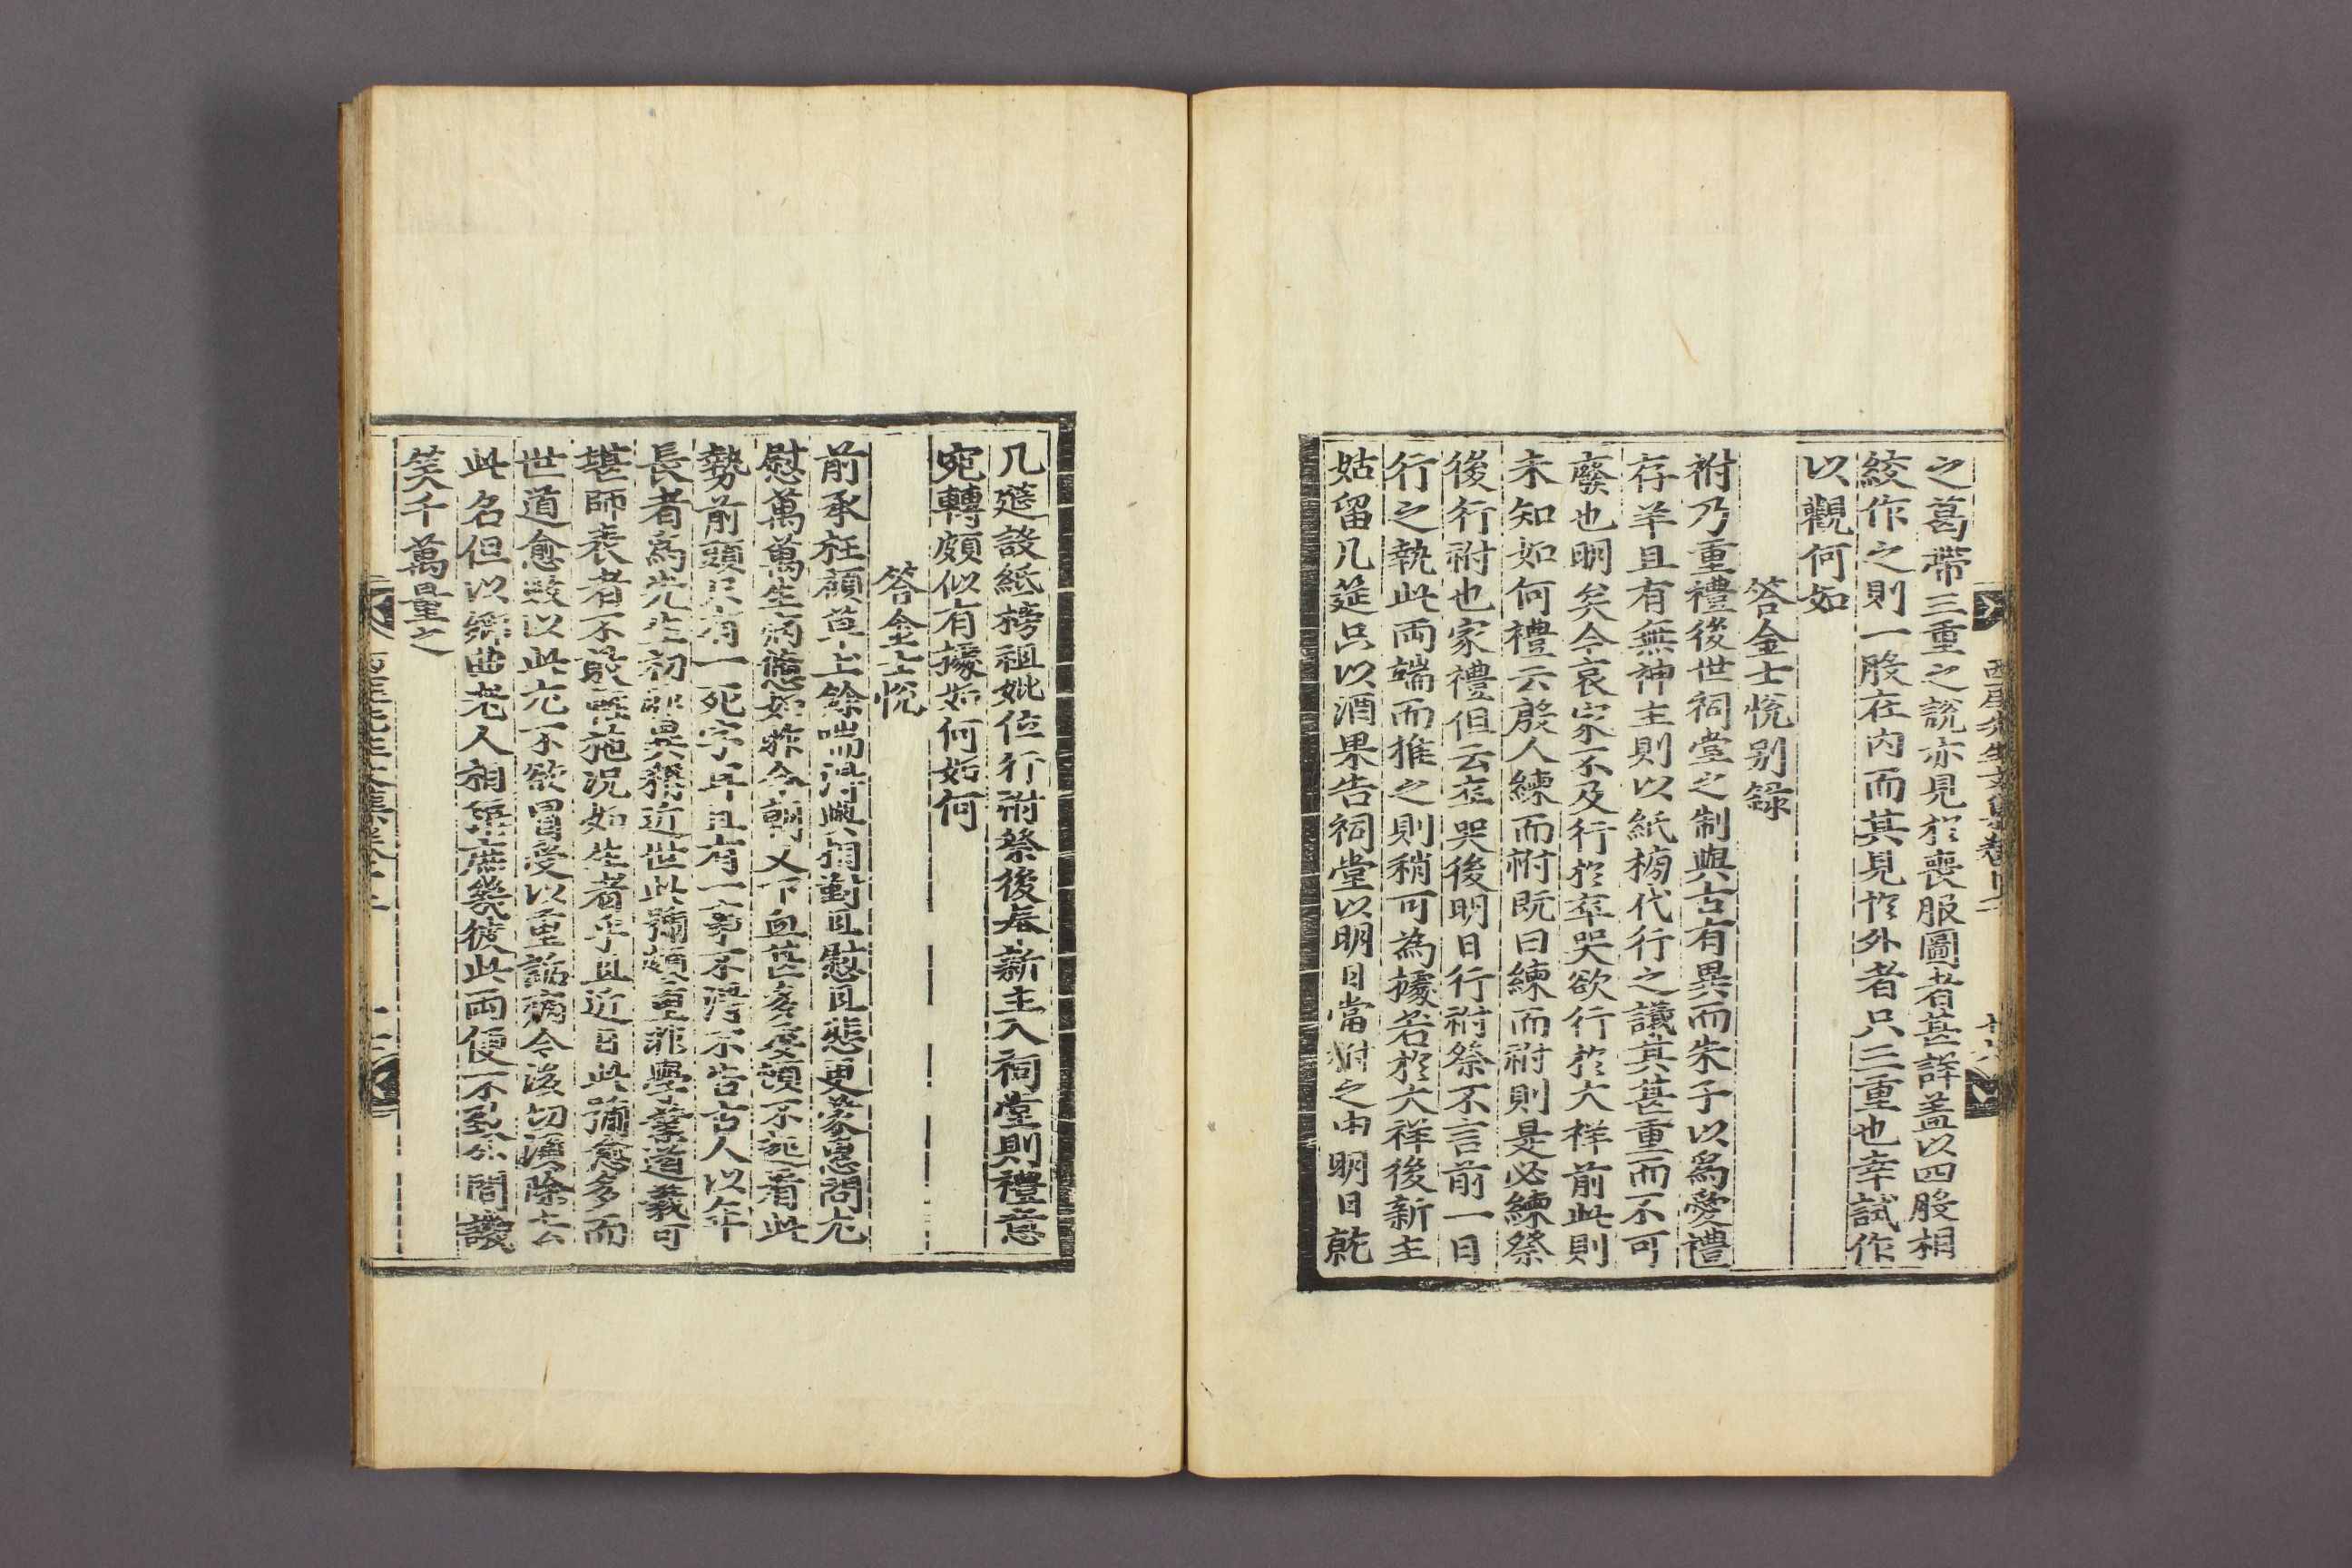 之葛帶三重之說亦見於喪服圖者甚詳蓋以四股相
絞作之則一股在内而其見於外者只三重也幸試作
以觀何如
答金士悅别録
祔乃重禮後世祠堂之制與古有異而朱子以爲愛禮
存羊且有無神主則以紙榜代行之議其甚重而不可
廢也明矣今哀家不及行於卒哭欲行於大祥前此則
未知如何禮云殷人練而祔既曰練而祔則是必練祭
後行祔也家禮但云卒哭後明日行祔祭不言前一日
行之執此兩端而推之則稍可為據若於大祥後新主
姑留几筵只以酒果告祠堂以明日當祔之由明日就
几筵設紙榜祖妣位行祔祭後奉新主入祠堂則禮意
宛轉頗似有據如何如何
答金士悅
前承枉顧苫上餘喘得與相對且慰且悲更蒙惠問尤
慰萬萬生病憊如昨今朝又下血甚多委頓不逞看此
勢前頭只有一死字耳且有一事不得不告古人以年
長者爲先生初非異稱近世此號頗重非學業道義可
堪師表者不敢輕施况如生者乎且近日此彌愈多而
世道愈毀以此尤不欲冒受以重詬病今後切須除去
此名但以鄉曲老人相處庶幾彼此兩便不致人間譏
笑千萬量之